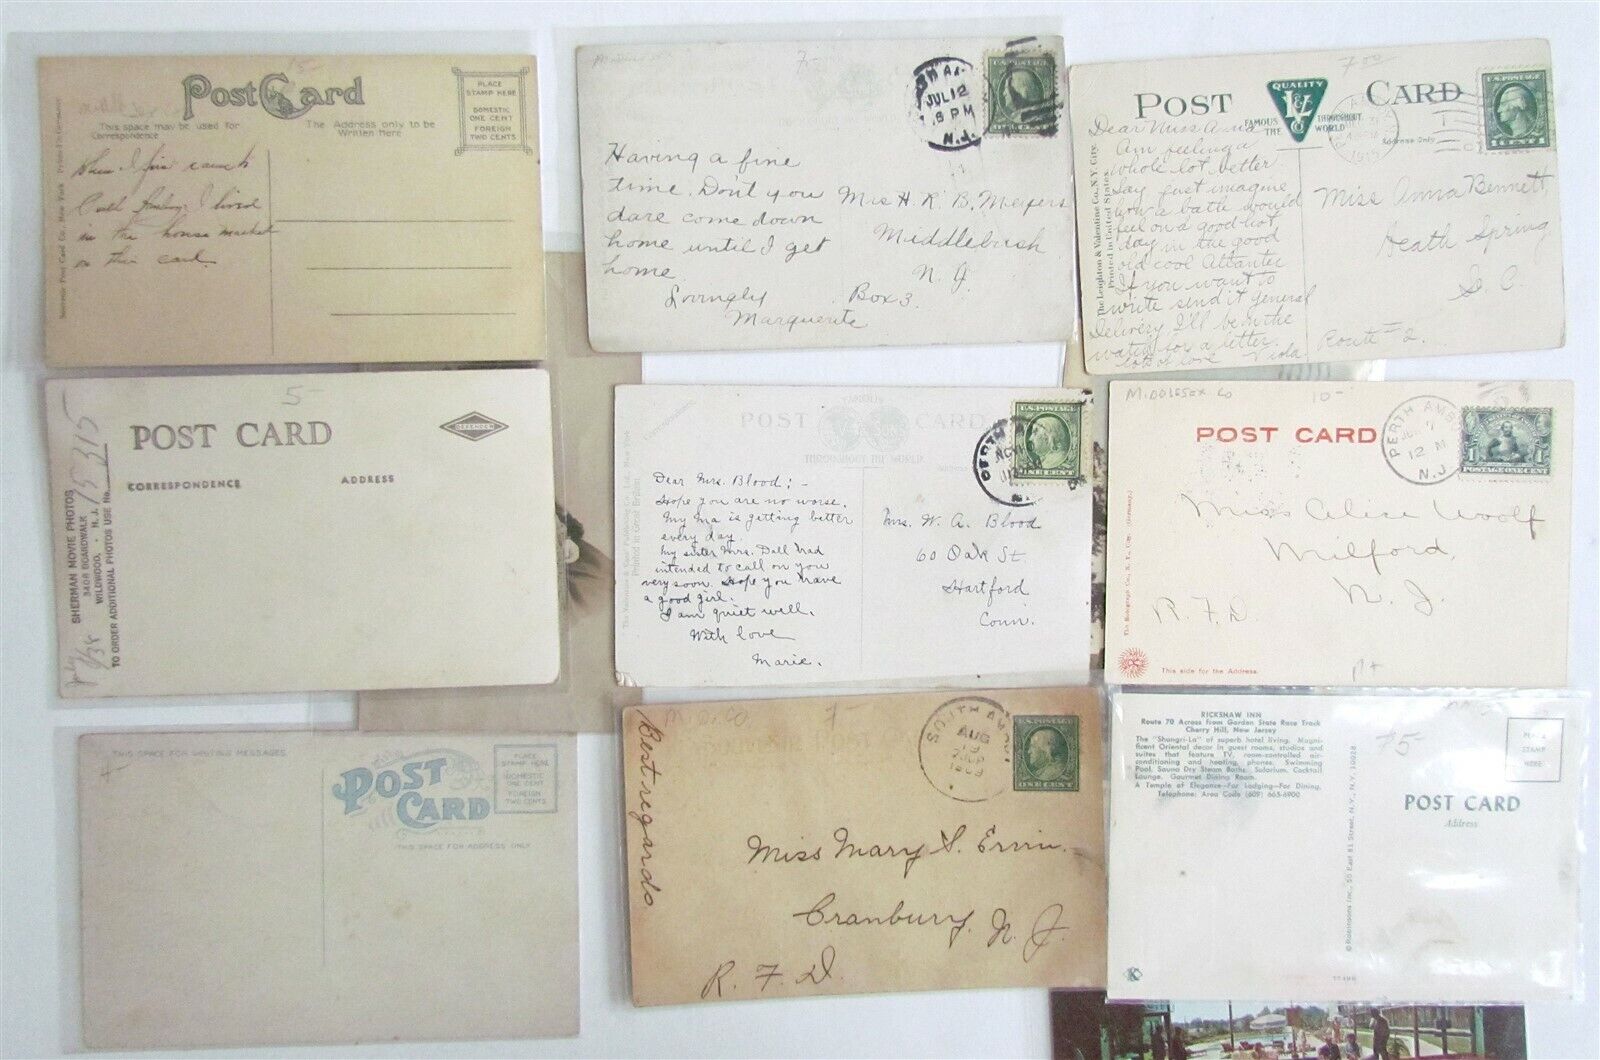 Post Card
PLACE
STAMP HERE
DOMESTIC
ONE CENT
FOREIGN
TWO CENTS
This space may be used for
Correspondence
The Address only to be
Written Here
When I
I lived
in the house
on this card.
Souvenir Post Card Co., New York
7-
JUL 12
PM
N.J.
Having a fine
time. Don't you
dare come down
home until I get
home.
Lovingly
Marguerite
Mrs H. R. B. Meyers
Middlebush
N. J.
Box 3.
7.00
POST CARD
QUALITY
L&V
Co
FAMOUS THROUGHOUT
THE WORLD
Address Only
1915
U.S. POSTAGE
1 CENT 1
The Leighton & Valentine Co., N.Y. City.
Printed in United States.
Dear Miss Anna
Am feeling a
whole lot better
Say just imagine
how a bath would
feel on a good hot
day in the good
old cool Atlantic
If you want to
write send it general
Delivery I'll be in the
waiting for a letter.
lots of love Viola.
Miss Anna Bennett,
Heath Spring
S. C.
Route #2.
5-
POST CARD
DEFENDER
CORRESPONDENCE
ADDRESS
SHERMAN MOVIE PHOTOS
3408 BOARDWALK
WILDWOOD, - N. J.
TO ORDER ADDITIONAL PHOTOS USE No.
75315
July
POST CARD
FAMOUS
THROUGHOUT THE WORLD
Correspondence.
U.S. POSTAGE
ONE CENT
PERTH
NOV
The Valentine & Sons' Publishing Co., Ltd., New York
Printed in Great Britain.
Dear Mrs. Blood; -
Hope you are no worse.
My Ma is getting better
every day.
My sister Mrs. Dall had
intended to call on you
very soon. Hope you have
a good girl.
I am quiet well.
With love
Marie.
Mrs. W. A. Blood
60 Oak St.
Hartford
Conn.
MIDDLESEX CO
10-
POST CARD
PERTH AMBOY
7
12 M
N.J.
POSTAGE ONE CENT
Miss Alice Woolf
Milford,
N. J.
R. F. D.
The Rotograph Co., N. Y. City. (Germany.)
This side for the Address.
THIS SPACE FOR WRITING MESSAGES
POST
CARD
PLACE
STAMP HERE
DOMESTIC
ONE CENT
FOREIGN
TWO CENTS
THIS SPACE FOR ADDRESS ONLY
Best regards
MID. CO.
7-
SOUTH AMBOY
AUG
19
1909
U.S. POSTAGE
ONE CENT
Miss Mary S. Ervin.
Cranbury, N. J.
R. F. D.
RICKSHAW INN
Route 70 Across from Garden State Race Track
Cherry Hill, New Jersey
The "Shangri-La" of superb hotel living. Magnificent
Oriental decor in guest rooms, studios and
suites that feature TV, room-controlled air-
conditioning and heating, phones. Swimming
Pool, Sauna Dry Steam Baths, Solarium, Cocktail
Lounge, Gourmet Dining Room.
A Temple of Elegance—For Lodging—For Dining.
Telephone: Area Code (609) 665-6900
75
PLACE
STAMP
HERE
POST CARD
Address
© Robinsons Inc., 50 East 81 Street, N.Y., N.Y. 10028
K